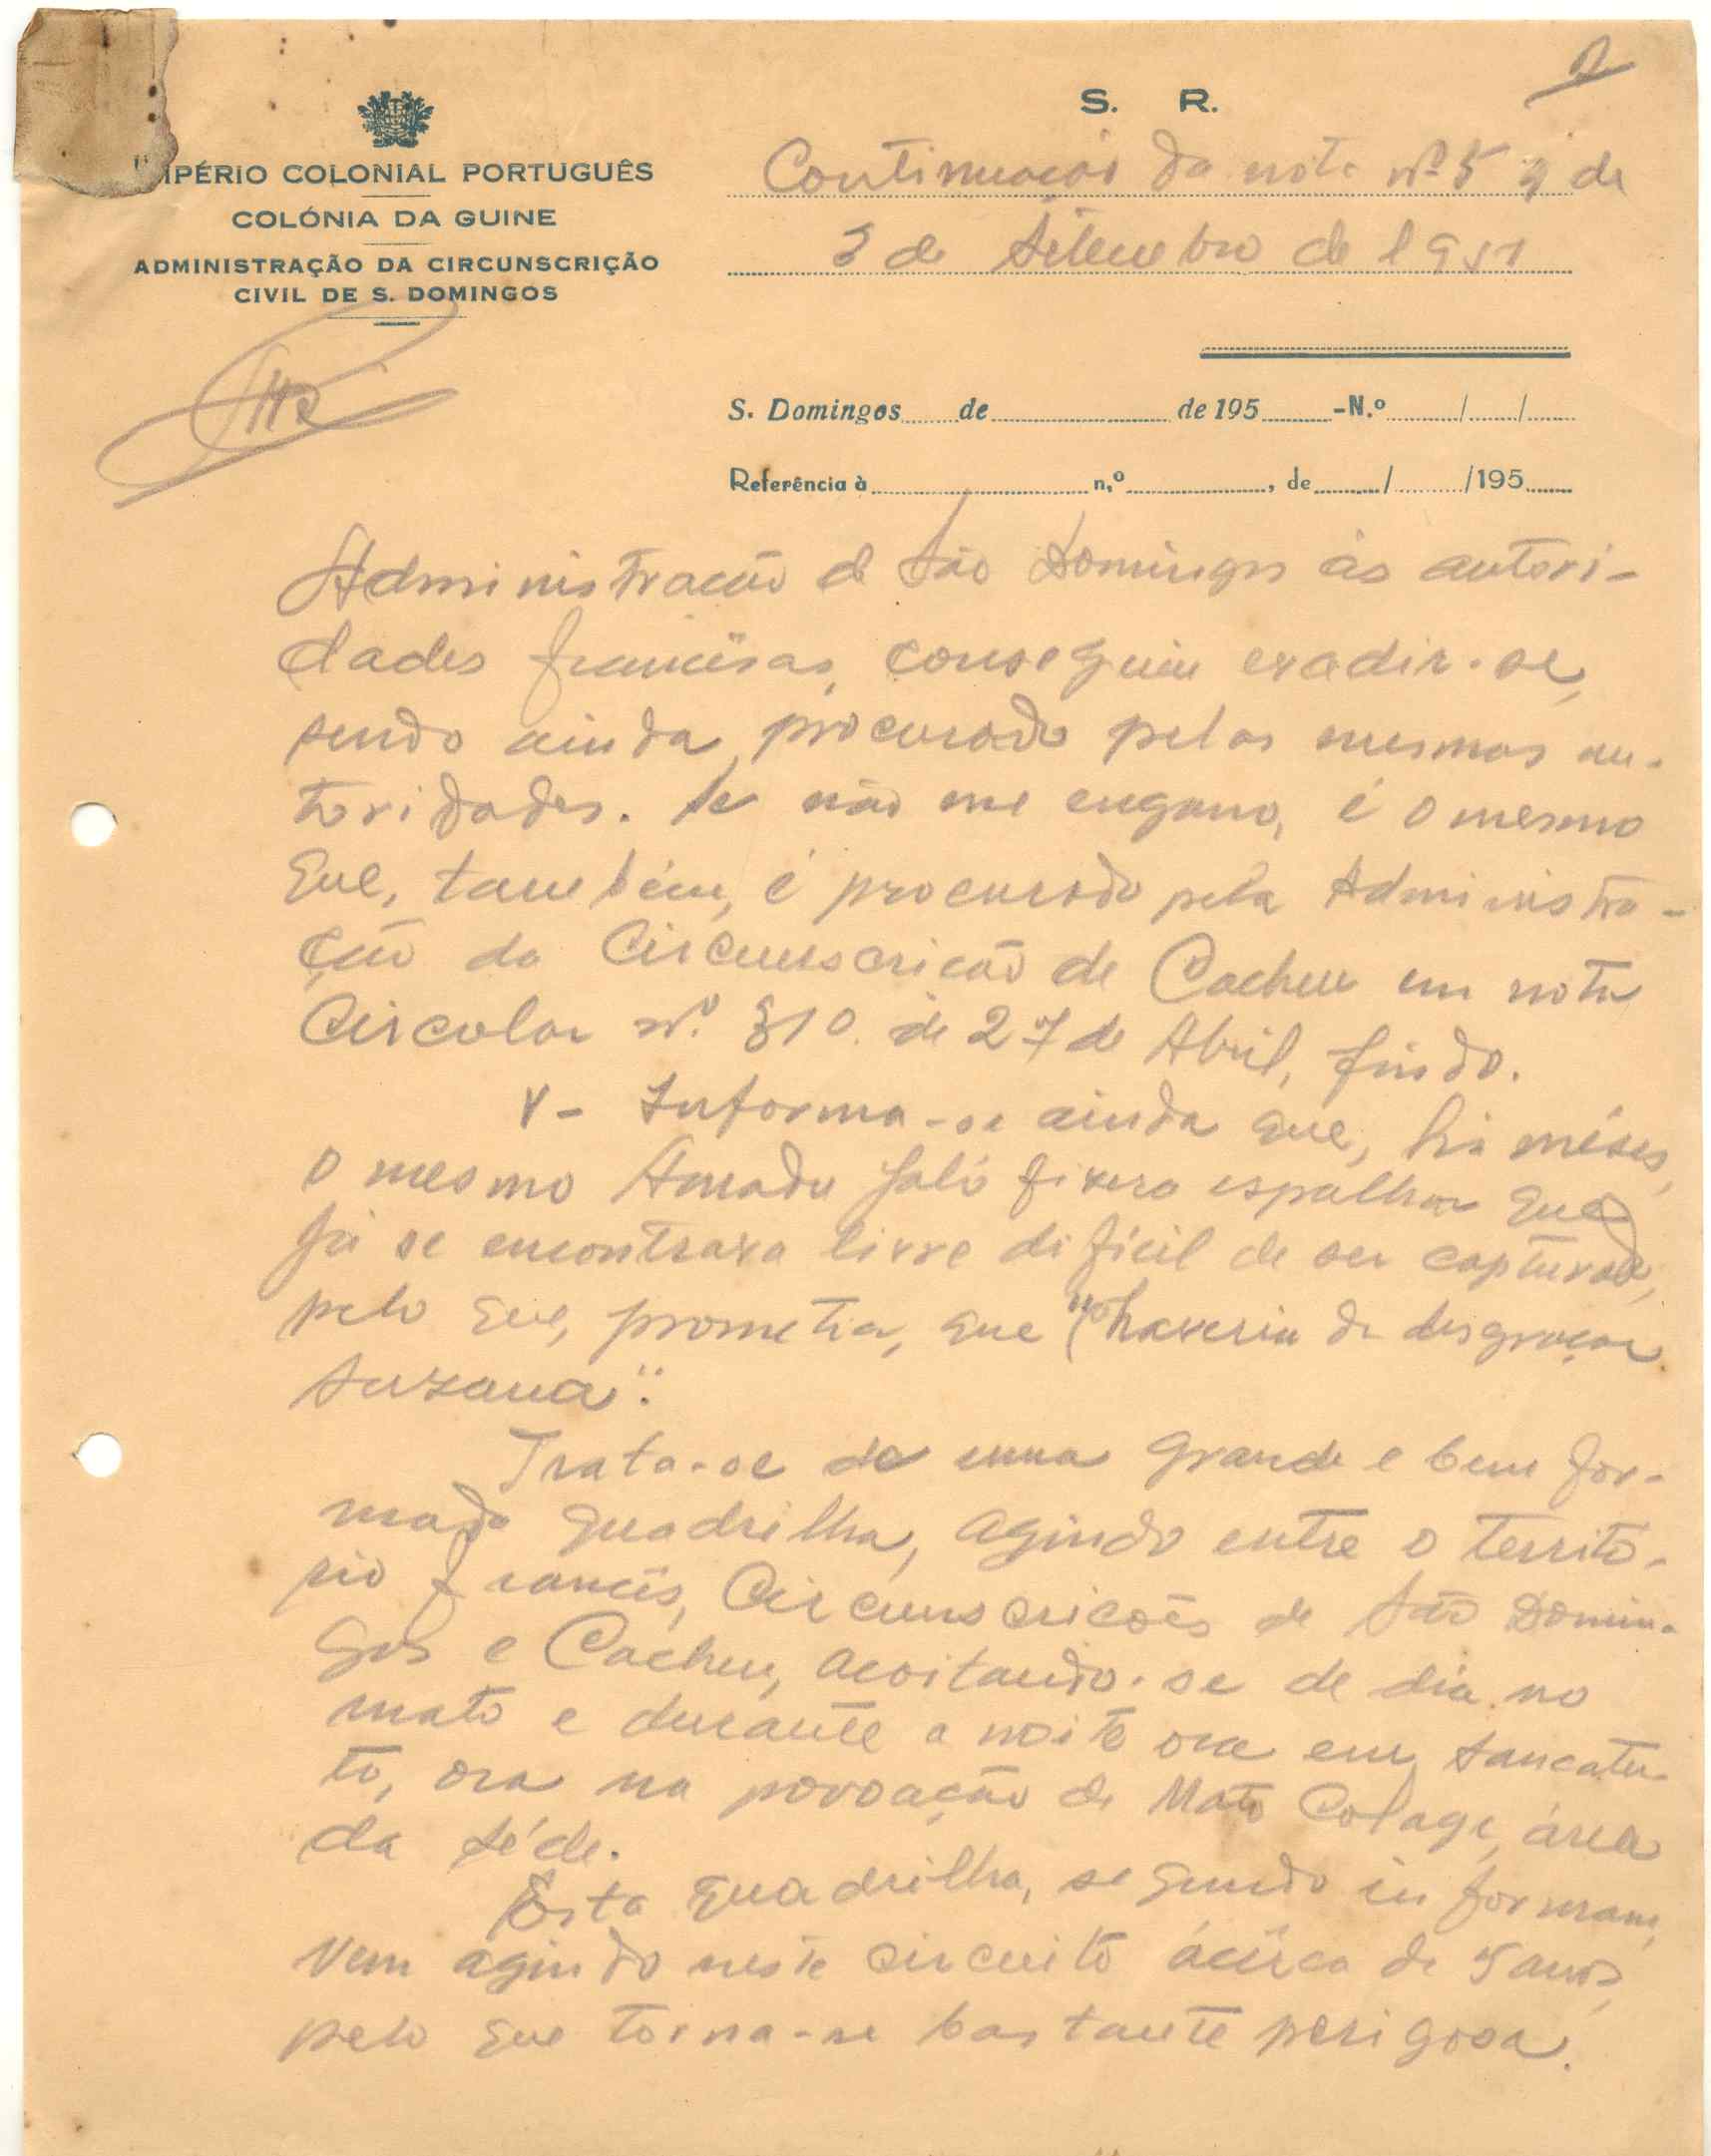 S. R.
IMPÉRIO COLONIAL PORTUGUÊS
COLÓNIA DA GUINE
ADMINISTRAÇÃO DA CIRCUNSCRIÇÃO
CIVIL DE S. DOMINGOS
Continuação da nota nº 5 de
3 de Setembro de 1951
S. Domingos de de 195 -N.º / /
Referência à n,º , de / /195
Administracão de São Domingos ás autori-
dades francêsas, conseguiu evadir-se,
sendo ainda procurado pelas mesmas au-
toridades. Se não me engano, é o mesmo
que, tambem, é procurado pela Administra-
ção da Circunscricão de Cacheu em nota
Circular nº. 310 de 27 de Abril, findo.
V- Informa-se ainda que, há mêses,
o mesmo Amadu Jaló fizera espalhar que
já se encontrava livre dificil de ser capturado,
pelo que, prometia, que "haveria de desgraçar
Suzana".
Trata-se de uma grande e bem for-
mada quadrilha, agindo entre o territó-
rio francês, Circunscricões de São Domin-
gos e Cacheu, acoitando-se de dia no
mato e durante a noite ora em Sancatu-
to, ora na povoação de Mato Colage, área
da séde.
Esta quadrilha, segundo informam,
vem agindo neste circuito acêrca de 5 anos,
pelo que torna-se bastante perigosa.